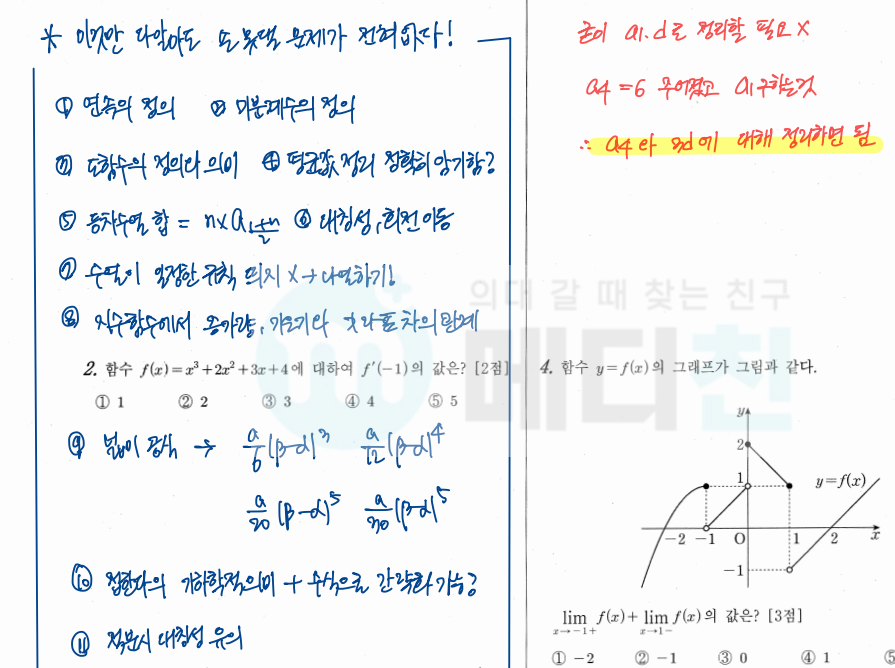 * 이것만 다알아도 또 못댈 문제가 전혀없다!
① 연속의 정의 ② 미분계수의 정의
③ 도함수의 정의와 의미 ④ 평균값 정리 정확히 암기함?
⑤ 등차수열 합 = n×a_{(1+n)/2} ⑥ 대칭성, 회전이동
⑦ 수열이 일정한 규칙 띄지 X → 나열하기!
⑧ 지수함수에서 증가량, 기울기와 x좌표 차의 관계
2. 함수 f(x)=x³+2x²+3x+4에 대하여 f′(−1)의 값은? [2점]
① 1 ② 2 ③ 3 ④ 4 ⑤ 5
⑨ 넓이 공식 → a/6(β-α)³ a/12(β-α)⁴
a/20(β-α)⁵ a/30(β-α)⁵
⑩ 접한다의 기하학적의미 + 수식으로 간략화 가능?
⑪ 적분시 대칭성 유의
굳이 a1.d로 정리할 필요 X
a4 = 6 주어졌고 a1구하는것
∴ a4와 d에 대해 정리하면 됨
의대 갈 때 찾는 친구
메디친
4. 함수 y=f(x)의 그래프가 그림과 같다.
y
2
1
y=f(x)
−2 −1 O 1 2 x
−1
lim_{x→−1+} f(x)+lim_{x→1−} f(x)의 값은? [3점]
① −2 ② −1 ③ 0 ④ 1 ⑤